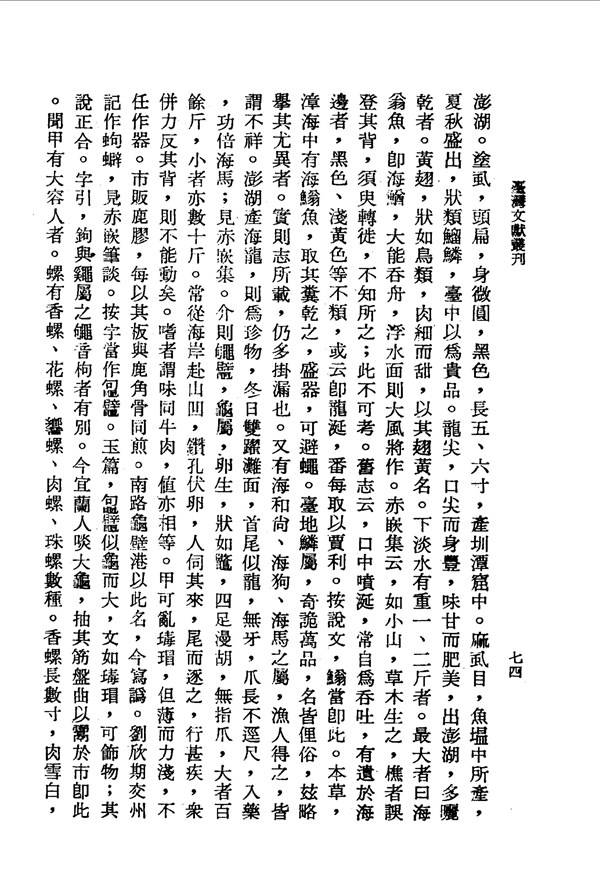 臺灣文獻叢刊
七四
澎湖。塗虱，頭扁，身微圓，黑色，長五、六寸，產圳潭窟中。麻虱目，魚塭中所產，
夏秋盛出，狀類鰡鱗，臺中以為貴品。龍尖，口尖而身豐，味甘而肥美，出澎湖，多曬
乾者。黃翅，狀如鳥類，肉細而甜，以其翅黃名。下淡水有重一、二斤者。最大者曰海
翁魚，卽海鰌，大能吞舟，浮水面則大風將作。赤嵌集云，如小山，草木生之，樵者誤
登其背，須臾轉徙，不知所之；此不可考。舊志云，口中噴涎，常自為吞吐，有遺於海
邊者，黑色、淺黃色等不類，或云卽龍涎，番每取以賈利。按說文，鰗當卽此。本草，
漳海中有海鰗魚，取其糞乾之，盛器，可避蠅。臺地鱗屬，奇詭萬品，名皆俚俗，玆略
舉其尤異者。實則志所載，仍多掛漏也。又有海和尙、海狗、海馬之屬，漁人得之，皆
謂不祥。澎湖產海龍，則為珍物，冬日雙躍灘面，首尾似龍，無牙，爪長不逕尺，入藥
，功倍海馬；見赤嵌集。介則𪓟鼊，龜屬，卵生，狀如鼈，四足漫胡，無指爪，大者百
餘斤，小者亦數十斤。常從海岸赴山凹，鑽孔伏卵，人伺其來，尾而逐之，行甚疾，衆
併力反其背，則不能動矣。嗜者謂味同牛肉，値亦相等。甲可亂瑇瑁，但薄而力淺，不
任作器。市販鹿膠，每以其板與鹿角骨同煎。南路龜壁港以此名，今寫譌。劉欣期交州
記作蚼蠏，見赤嵌筆談。按字當作𪓟鼊。玉篇，𪓟鼊似龜而大，文如瑇瑁，可飾物；其
說正合。字引，鉤與鼊屬之𪓟音枸者有別。今宜蘭人啖大龜，抽其筋盤曲以鬻於市卽此
。聞甲有大容人者。螺有香螺、花螺、響螺、肉螺、珠螺數種。香螺長數寸，肉雪白，